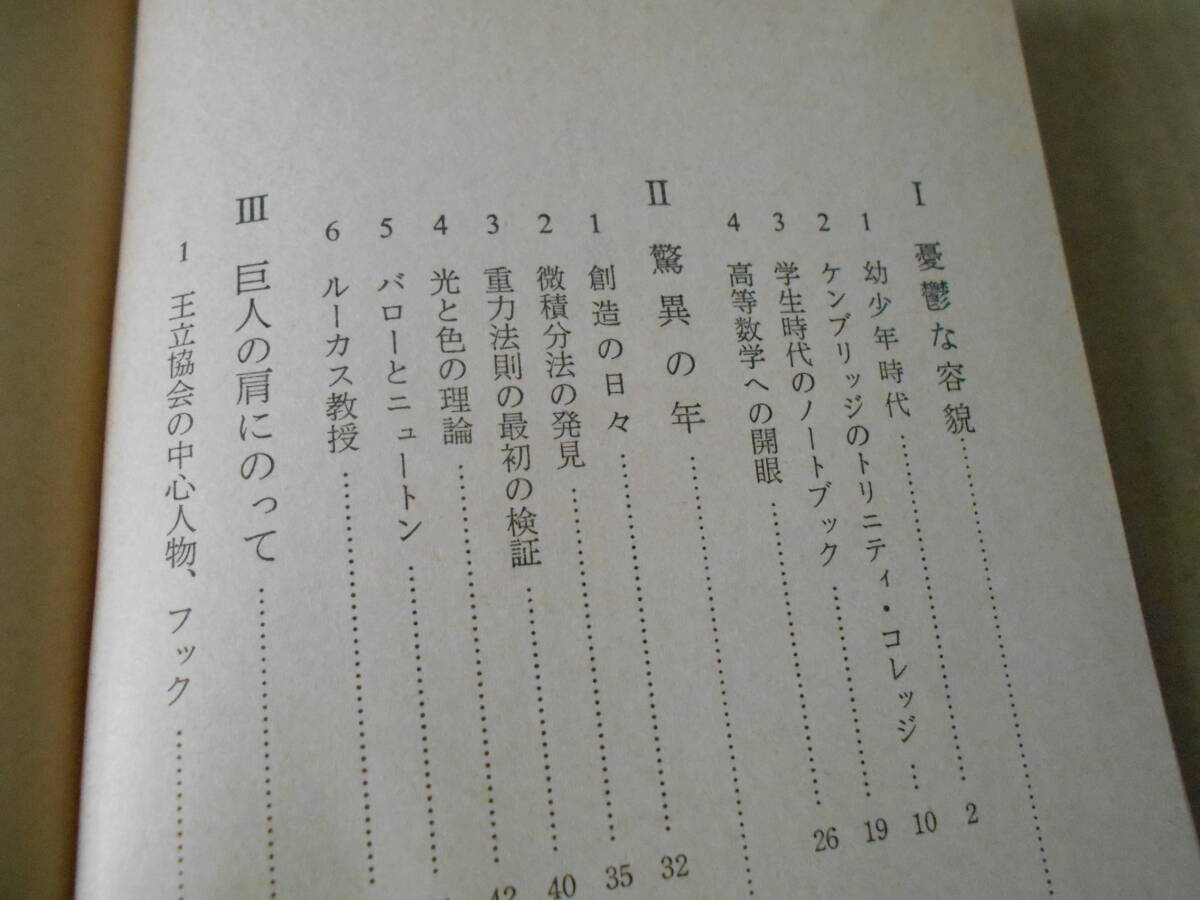 I 憂鬱な容貌
1 幼少年時代 2
2 ケンブリッジのトリニティ・コレッジ 10
3 学生時代のノートブック 19
4 高等数学への開眼 26
II 驚異の年
1 創造の日々 32
2 微積分法の発見 35
3 重力法則の最初の検証 40
4 光と色の理論 42
5 バローとニュートン
6 ルーカス教授
III 巨人の肩にのって
1 王立協会の中心人物、フック